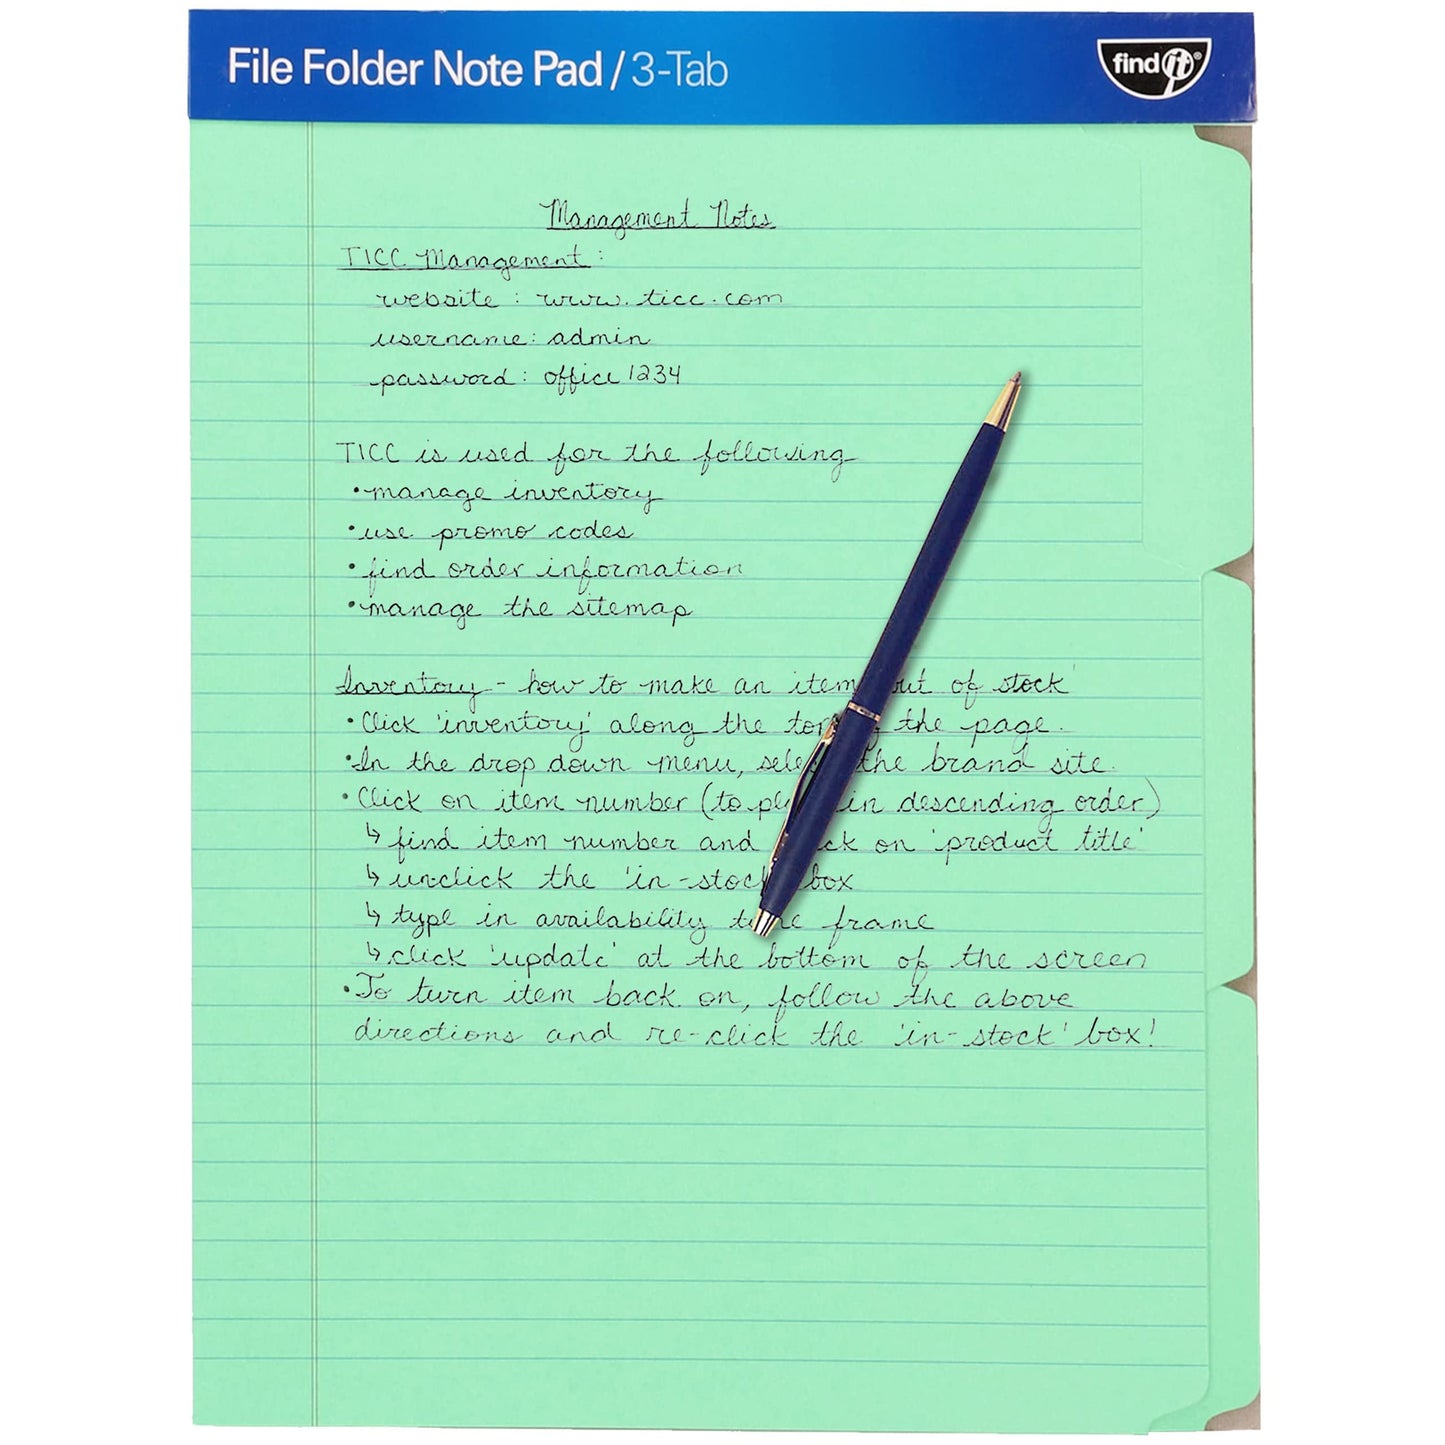 File Folder Note Pad / 3-Tab
find it®
Management Notes
TICC Management:
website: www.ticc.com
username: admin
password: office1234
TICC is used for the following
•manage inventory
•use promo codes
•find order information
•manage the sitemap
Inventory - how to make an item out of stock
•Click 'inventory' along the top the page.
•In the drop down menu, select the brand site.
•Click on item number (to in descending order)
↳find item number and on 'product title'
↳unclick the 'in-stock box
↳type in availability frame
↳click 'update' at the bottom of the screen
•To turn item back on, follow the above
directions and re-click the 'in-stock' box!